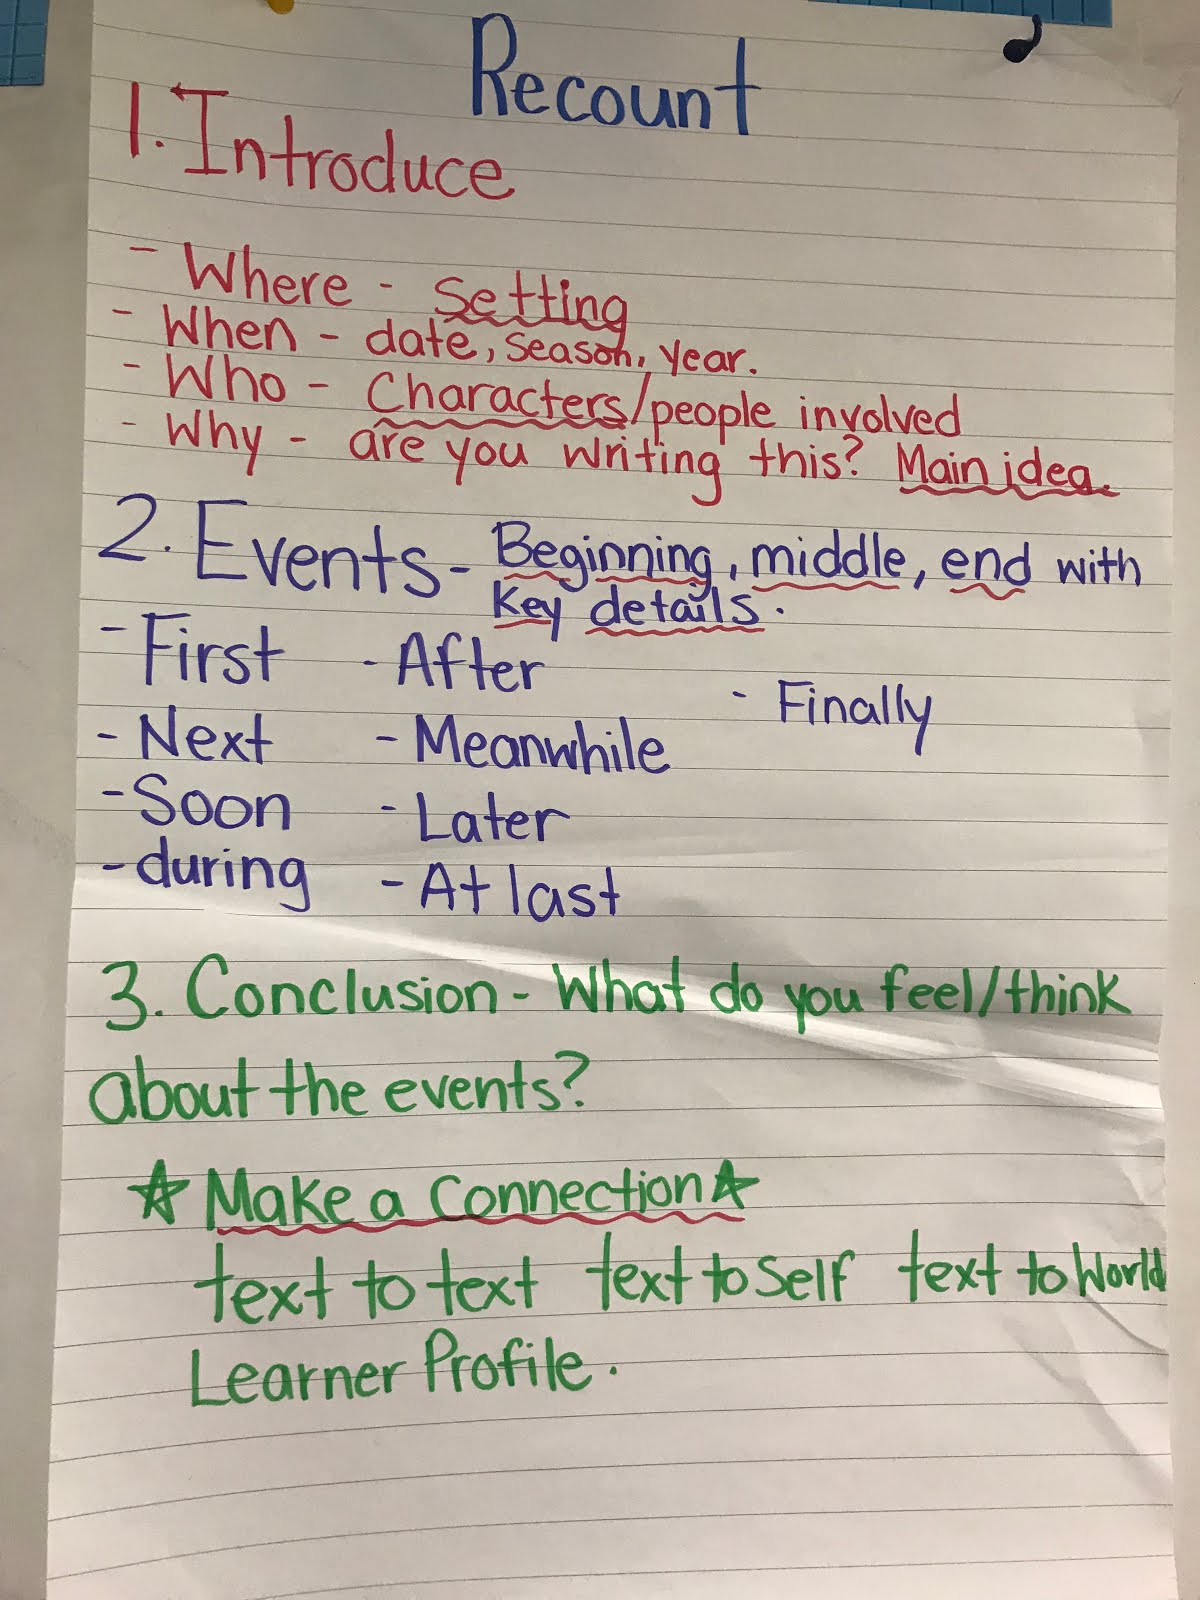 Recount
1. Introduce
- Where - Setting
- When - date, season, year.
- Who - Characters/people involved
- Why - are you writing this? Main idea.
2. Events - Beginning, middle, end with
key details.
- First - After
- Finally
- Next - Meanwhile
- Soon - Later
- during - At last
3. Conclusion - What do you feel/think
about the events?
☆ Make a Connection ☆
text to text text to Self text to World
Learner Profile.